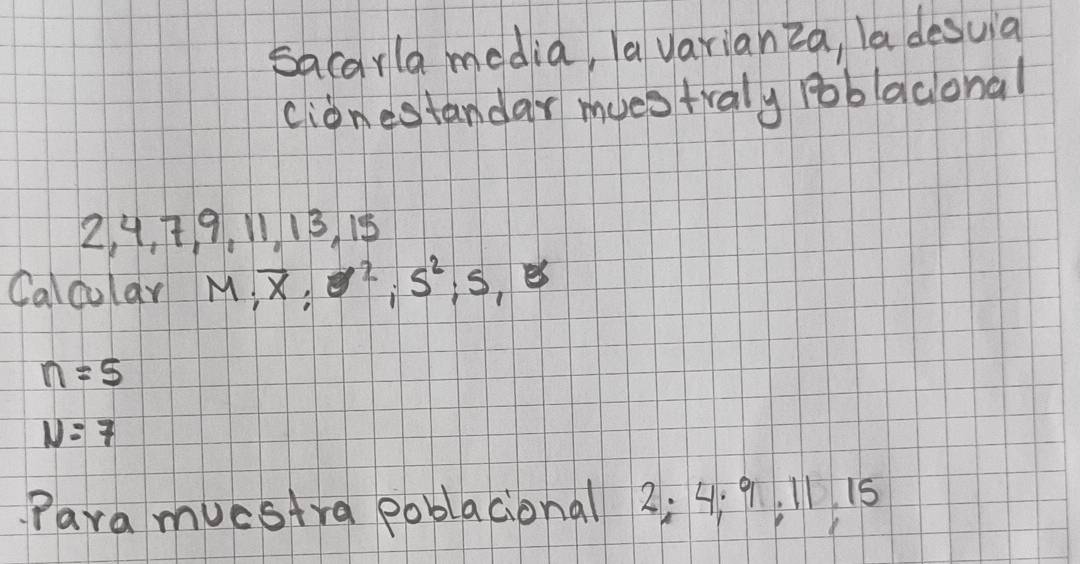 Sacar la media, la varianza, la desvia
ción estandar muestral y Poblacional
2, 4, 7, 9, 11, 13, 15
Calcular M; x̄; σ²; S²; S, σ
n = 5
N = 7
Para muestra poblacional 2; 4; 9; 11; 15